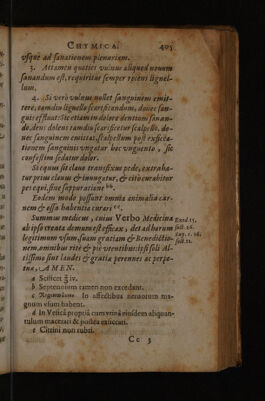 CHYMICA. 405
vsque ad sanationem plenariam.
3. Attamen quoties vulnus aliquod nouum
sanandum est, requiritur semper recens lignel-
lum.
4. Si verò vulnus nollet sanguinem emit-
tere, tamdiu liguello scarificandum, donec san-
guis effluat: Sic etiam in dolore dentium sanan-
do, dens dolens tamdiu scarificetur scalpello, do-
nec sanguinem emittat, scalpellum post exsicca-
tionem sanguinis vngatur hoc vnguento, sic
confestim sedatur dolor.
Si equus sit clauo transfixus pede, extraha-
tur prius clauus & inungatur, & citò curabitur
pes equi, sine suppuratione
Eodem modo possunt omnia animalia car-
nem & ossa habentia curari
Summus medicus, cuius Verbo Medicina
ab ipso creata demum est efficax, det ad hurum
legitimum vsum, suam gratiam & Benedictio-
nem, omnibus ritè & piè vtentibus: ipsi sibi Al-
tissimo sint laudes & gratiæ perennes ac perpe-
tuæ, AMEN.
Exod. 15.
sect. 26.
Say. c. 16.
sect. 12.
a Scilicet ℥ iv.
b Septenarium tamen non excedant.
c In affectibus neruorum ma-
gnum vsum habent.
d In Vesica propria cum vrina eiusdem aliquan-
tulum macerari & postea exsiccari.
e Citrini non rubri.
Cc 3